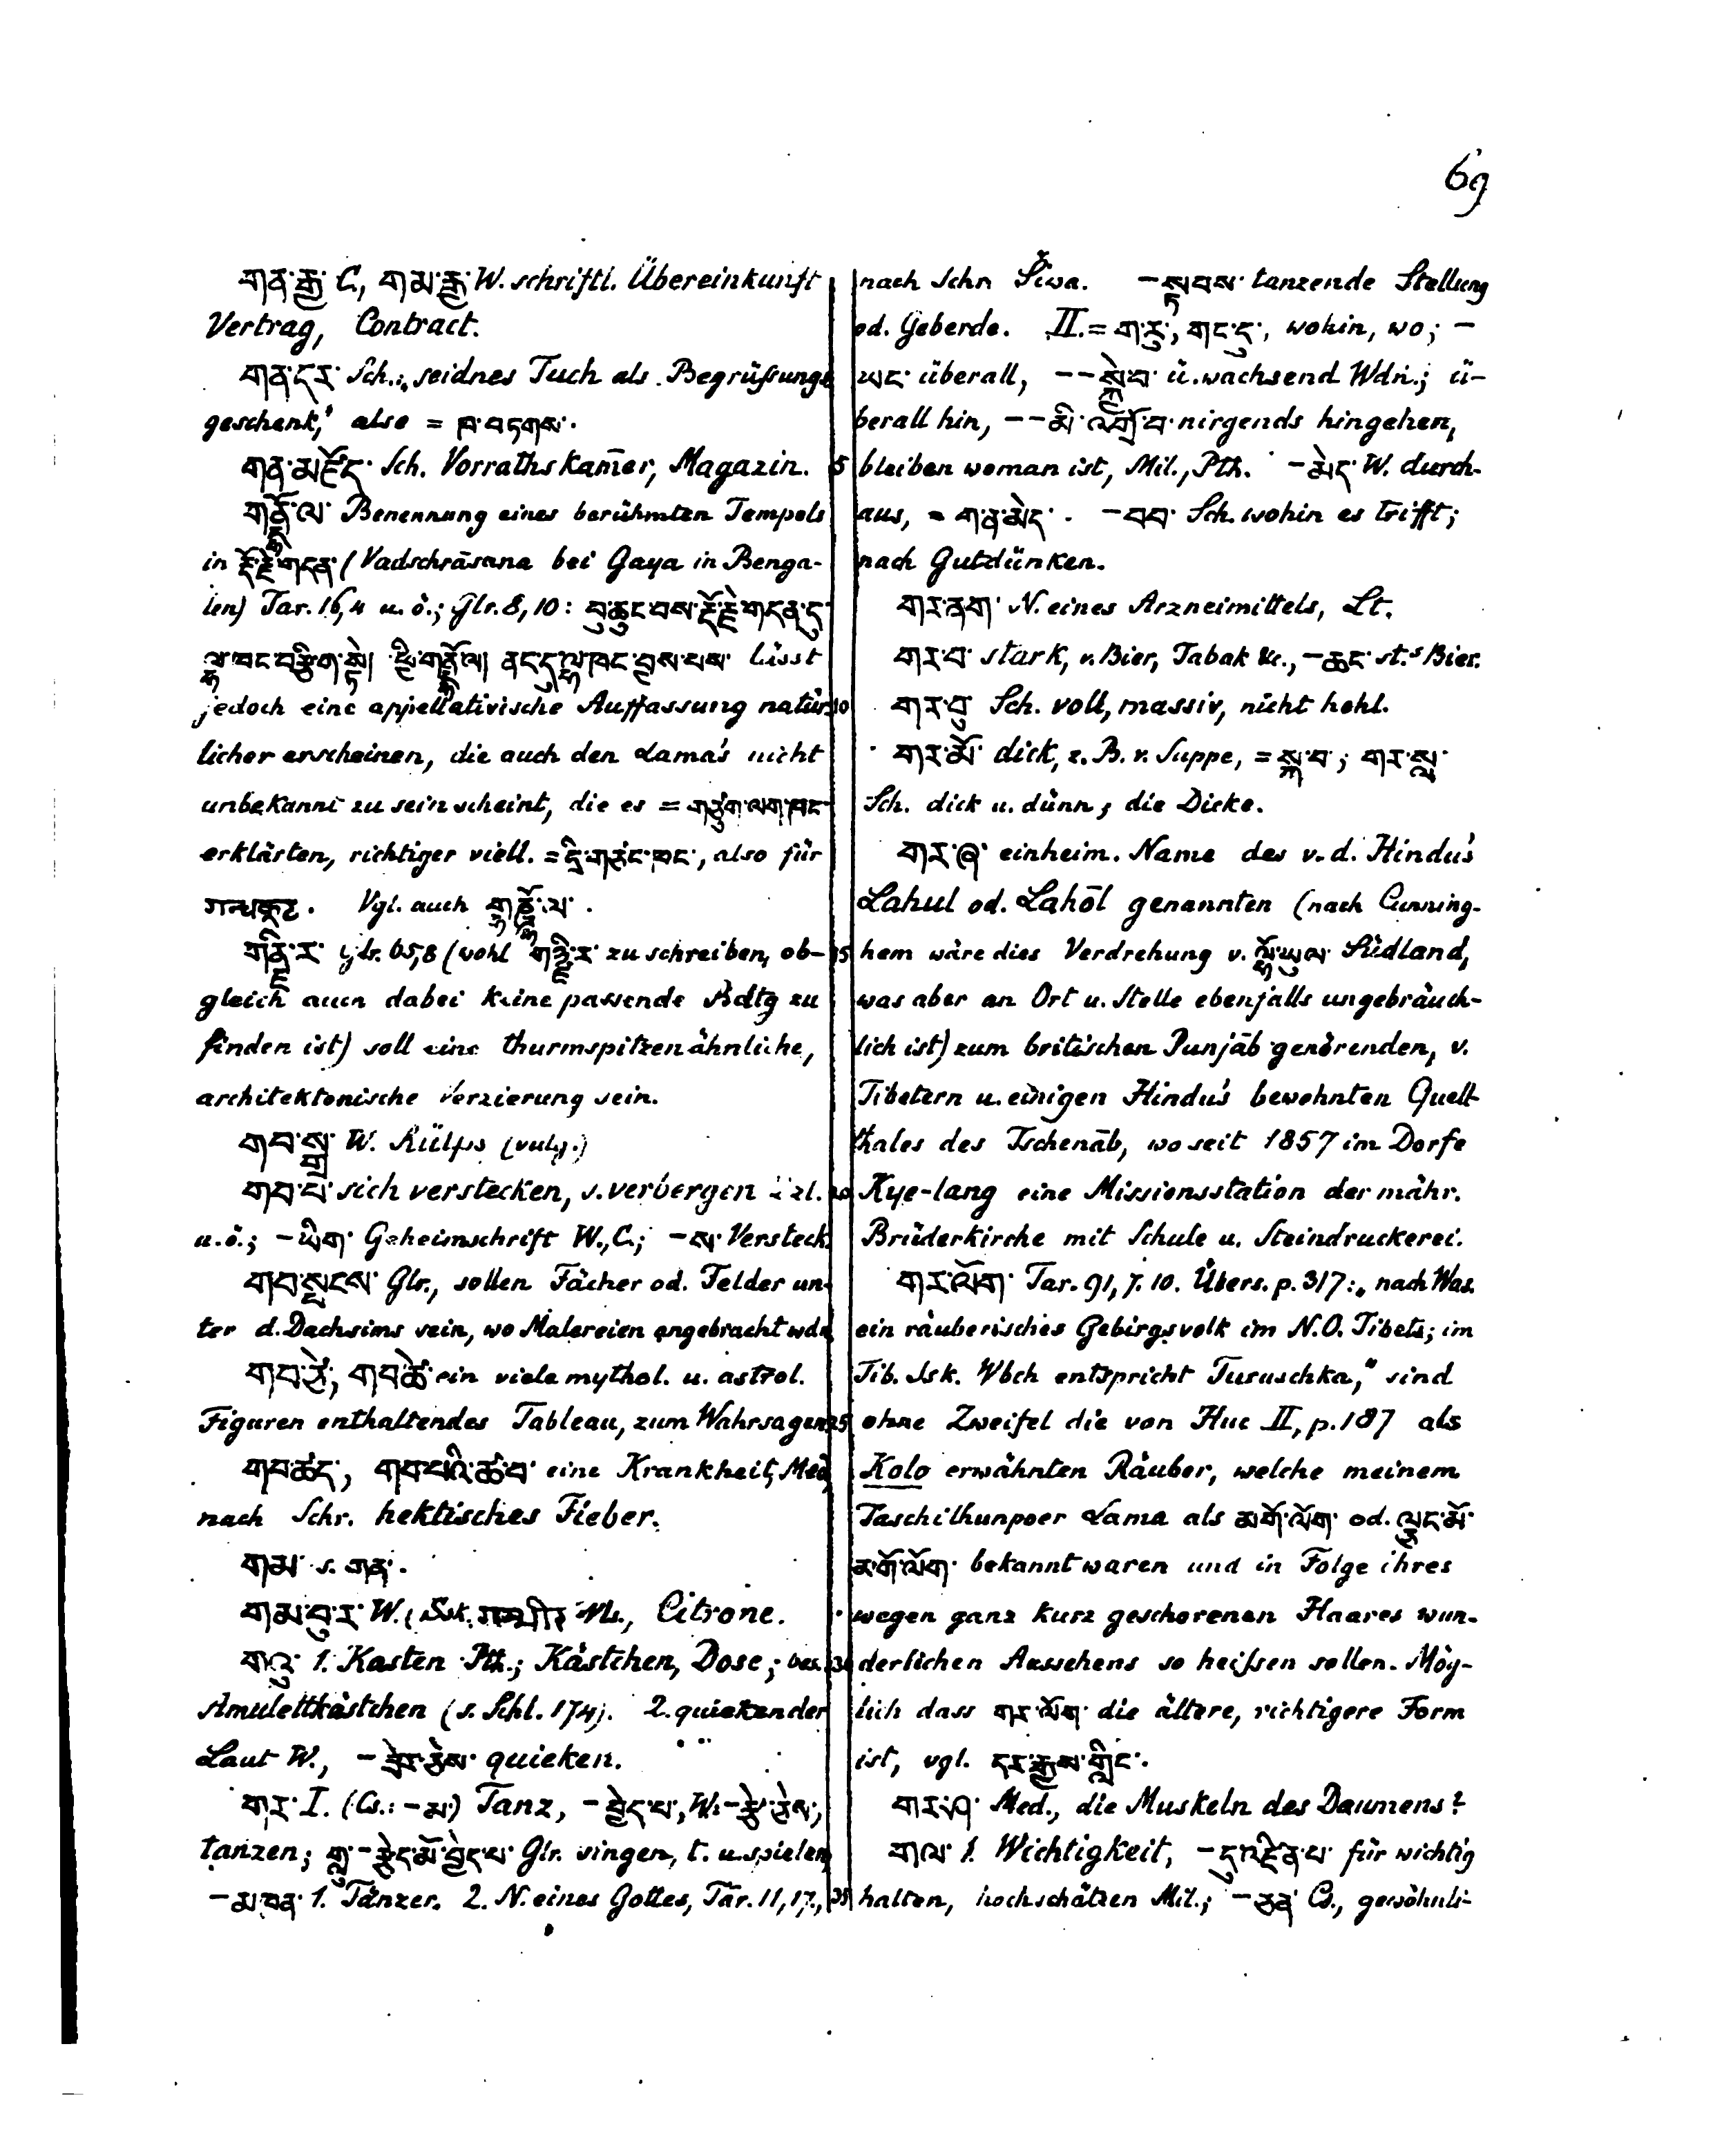 69
གན་རྒྱ་ C, གམ་རྒྱ་ W. schriftl. Übereinkunft
Vertrag, Contract.
གན་དར་ Sch.: „seidnes Tuch als Begrüßungs
geschenk," also = ཁ་བཏགས་.
གན་མཛོད་ Sch. Vorrathskam̄er, Magazin.
Benennung eines berühmten Tempels
in རྡོ་རྗེ་གདན་ (Vadschrāsana bei Gaya in Benga-
len) Tar. 16,4 u. ö.; Glr. 8, 10: བུ་ཆུང་བས་རྡོ་རྗེ་གདན་དུ་
ལྷ་ཁང་བརྩིག་སྟེ། ནང་དུ་ལྷ་ཁང་བྱས་པས་ lässt
jedoch eine appellativische Auffassung natür-
licher erscheinen, die auch den Lama's nicht
unbekannt zu sein scheint, die es = གཙུག་ལག་ཁང་
erklärten, richtiger viell. = དྲི་གཙང་ཁང་, also für
Vgl. auch
Glr. 65,8 (wohl zu schreiben, ob-
gleich auch dabei keine passende Bdtg zu
finden ist) soll eine thurmspitzenähnliche,
architektonische Verzierung sein.
W. Rülps (vulg.)
གབ་པ་ sich verstecken, s. verbergen Dzl.
u. ö.; -ཡིག་ Geheimschrift W., C.; -ས་ Versteck.
གབ་སྤུངས་ Glr., sollen Fächer od. Felder un-
ter d. Dachsims sein, wo Malereien angebracht wdn
གབ་ཙེ་, གབ་ཚེ་ ein viele mythol. u. astrol.
Figuren enthaltendes Tableau, zum Wahrsagen.
གབ་ཚད་, གབ་པའི་ཚ་བ་ eine Krankheit, Med.
nach Schr. hektisches Fieber.
གམ་ s. གན་.
གམ་བུ་ར་ W. (Ssk. Ms., Citrone.
གའུ་ 1. Kasten Pth.; Kästchen, Dose; bes.
Amulettkästchen (s. Schl. 174). 2. quiekender
Laut W., quieken.
གར་ I. (Cs.: -མ་) Tanz, -བྱེད་པ་, W. -རྩེ་ཅེས་,
tanzen; གླུ་-རྩེད་མོ་བྱེད་པ་ Glr. singen, t. u. spielen,
-མཁན་ 1. Tänzer. 2. N. eines Gottes, Tār. 11, 17.,
nach Schn Šiwa. -སྟབས་ tanzende Stellung
od. Geberde. II. = ག་རུ་, གང་དུ་, wohin, wo; -
ཡང་ überall, --སྐྱེ་བ་ ü. wachsend Wdn.; ü-
berall hin, --མི་འགྲོ་བ་ nirgends hingehen,
bleiben wo man ist, Mil., Pth. -མེད་ W. durch-
aus, = གན་མེད་. -བབ་ Sch. wohin es trifft;
nach Gutdünken.
གར་ནག་ N. eines Arzneimittels, Lt.
གར་བ་ stark, v. Bier, Tabak &c., -ཆང་ st.s Bier.
གར་བུ་ Sch. voll, massiv, nicht hohl.
གར་མོ་ dick, z. B. v. Suppe, = སྐ་བ་; གར་སླ་
Sch. dick u. dünn; die Dicke.
གར་ཞ་ einheim. Name des v. d. Hindu's
Lahul od. Lahōl genannten (nach Cunning-
ham wäre dies Verdrehung v. ལྷོ་ཡུལ་ Südland,
was aber an Ort u. Stelle ebenfalls ungebräuch-
lich ist) zum britischen Punjāb gehörenden, v.
Tibetern u. einigen Hindu's bewohnten Quell-
thales des Tschenāb, wo seit 1857 im Dorfe
Kye-lang eine Missionsstation der mähr.
Brüderkirche mit Schule u. Steindruckerei.
གར་ལོག་ Tar. 91, 7. 10. Übers. p. 317: „nach Was.
ein räuberisches Gebirgsvolk im N.O. Tibets; im
Tib. Ssk. Wbch entspricht Turuschka," sind
ohne Zweifel die von Huc II, p. 187 als
Kolo erwähnten Räuber, welche meinem
Taschilhunpoer Lama als མགོ་ལོག་ od. ལྕང་མོ་
ན་གོ་ལོག་ bekannt waren und in Folge ihres
wegen ganz kurz geschorenen Haares wun-
derlichen Aussehens so heißen sollen. Mög-
lich dass གར་ལོག་ die ältere, richtigere Form
ist, vgl. དར་རྒྱས་གླིང་.
གར་ཤ་ Med., die Muskeln des Daumens?
གལ་ 1. Wichtigkeit, -དུ་འཛིན་པ་ für wichtig
halten, hochschätzen Mil.; -ཅན་ Cs., gewöhnli-